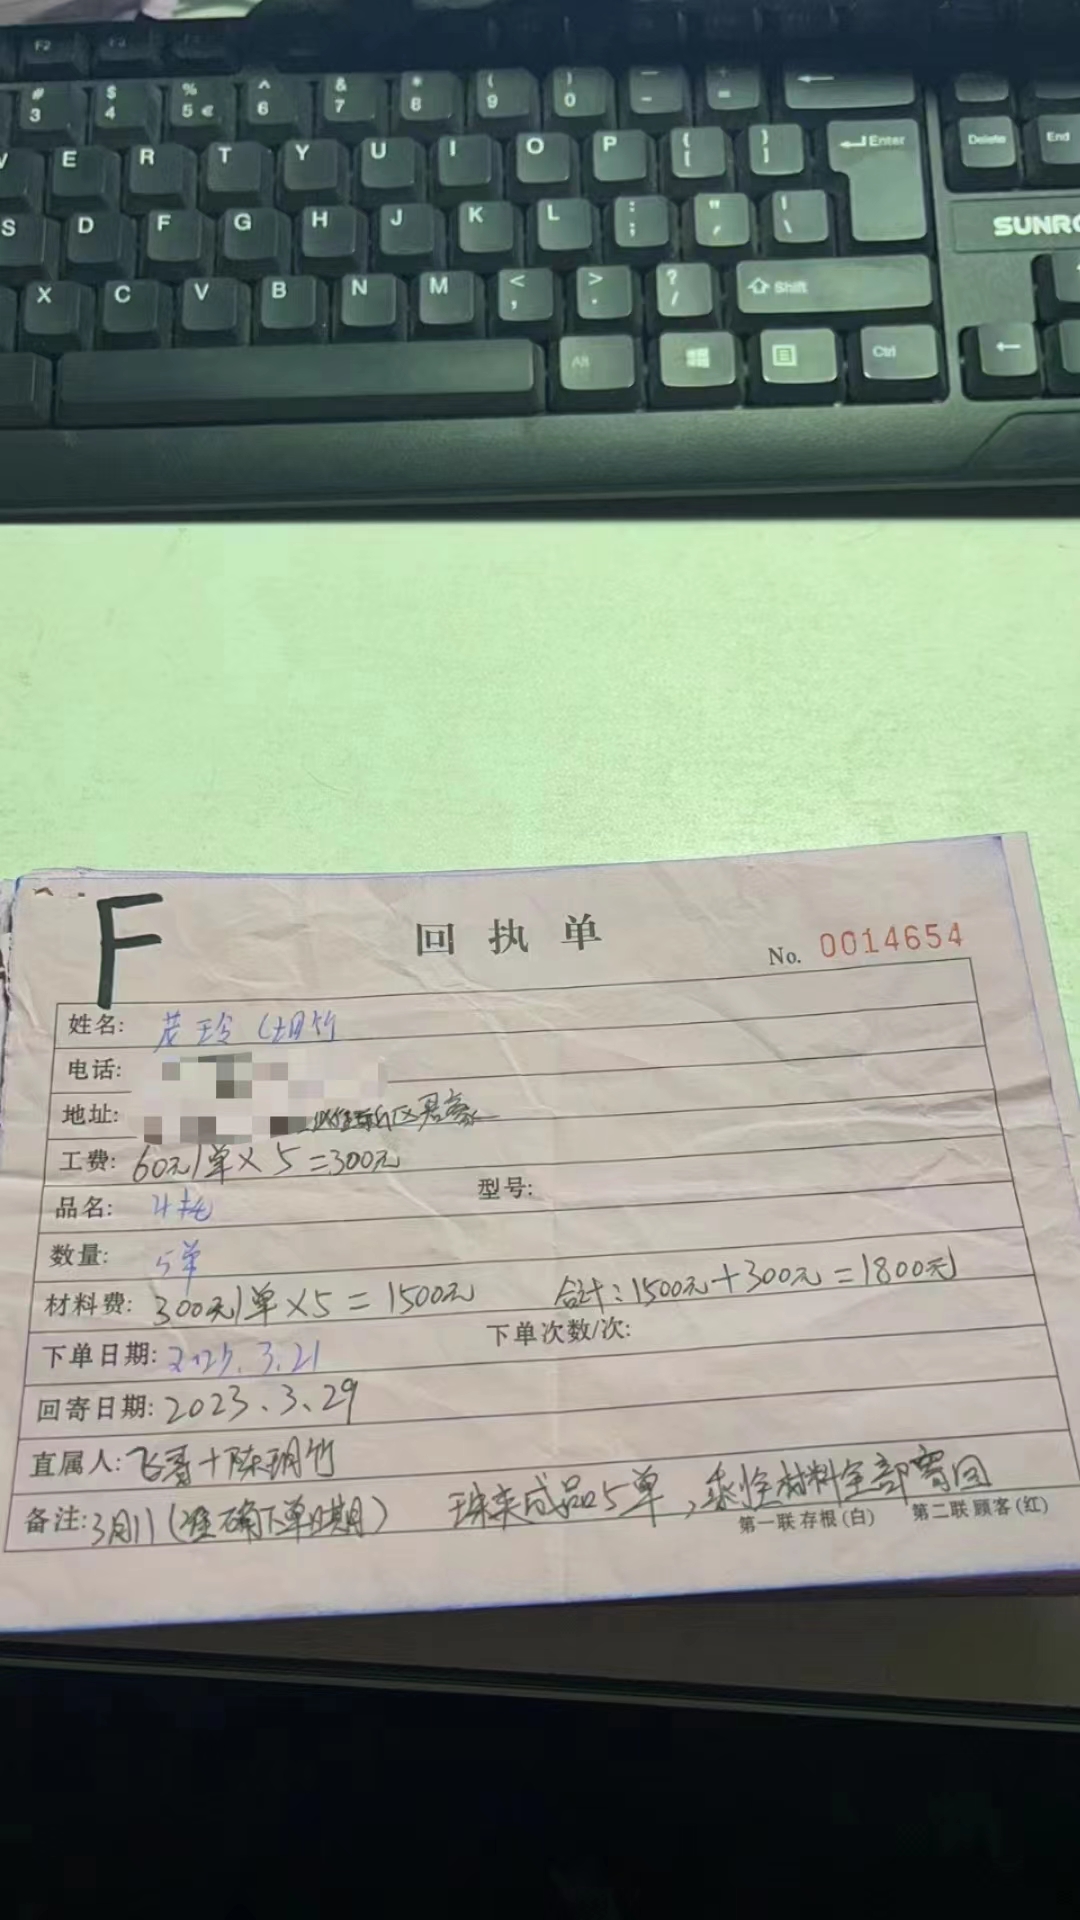 F2 F3
# 3 $ 4 % 5 € ^ 6 & 7 * 8 ( 9 ) 0 — - + = ←
E R T Y U I O P { [ } ] Enter Delete End
S D F G H J K L : ; " ' | \ SUNRO
X C V B N M < , > . ? / Shift
Alt Ctrl ←
F
回执单
No. 0014654
姓名: 玲
电话:
地址: 区君豪
工费: 60元/单×5=300元
品名: 型号:
数量: 5单
材料费: 300元/单×5=1500元 合计:1500元+300元=1800元
下单日期: 3.21 下单次数/次:
回寄日期: 2023.3.29
直属人: 飞哥+陈玥竹
备注: 3月11(准确下单日期) 珠夹成品5单,剩馀材料全部寄回
第一联 存根(白) 第二联 顾客(红)